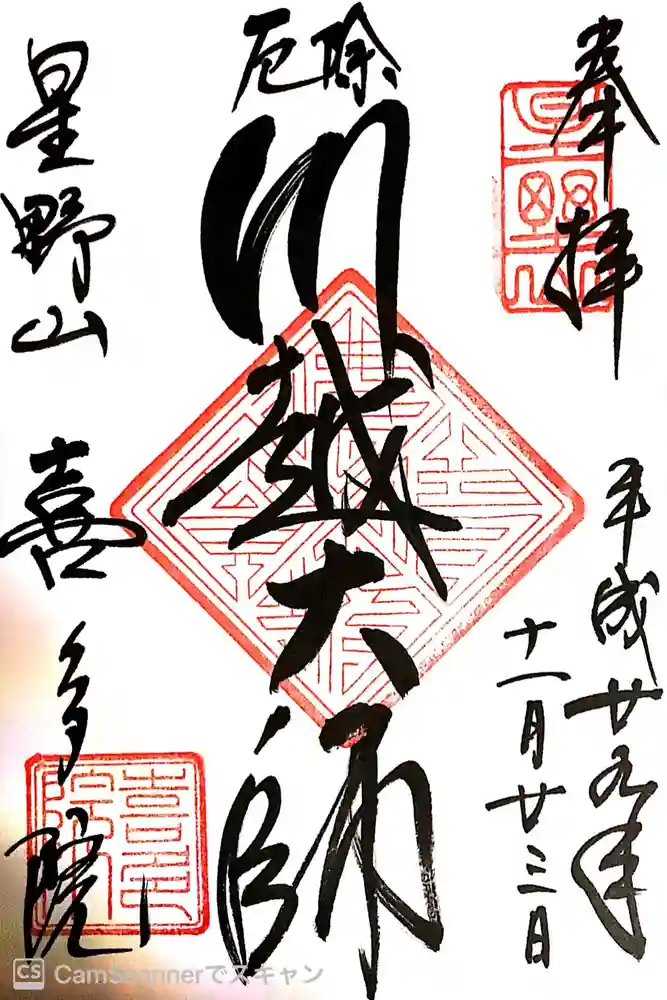 奉拝
平成廿九年
十一月廿三日
厄除
川越大師
星野山
喜多院
星野山
喜多院
CS CamScannerでスキャン